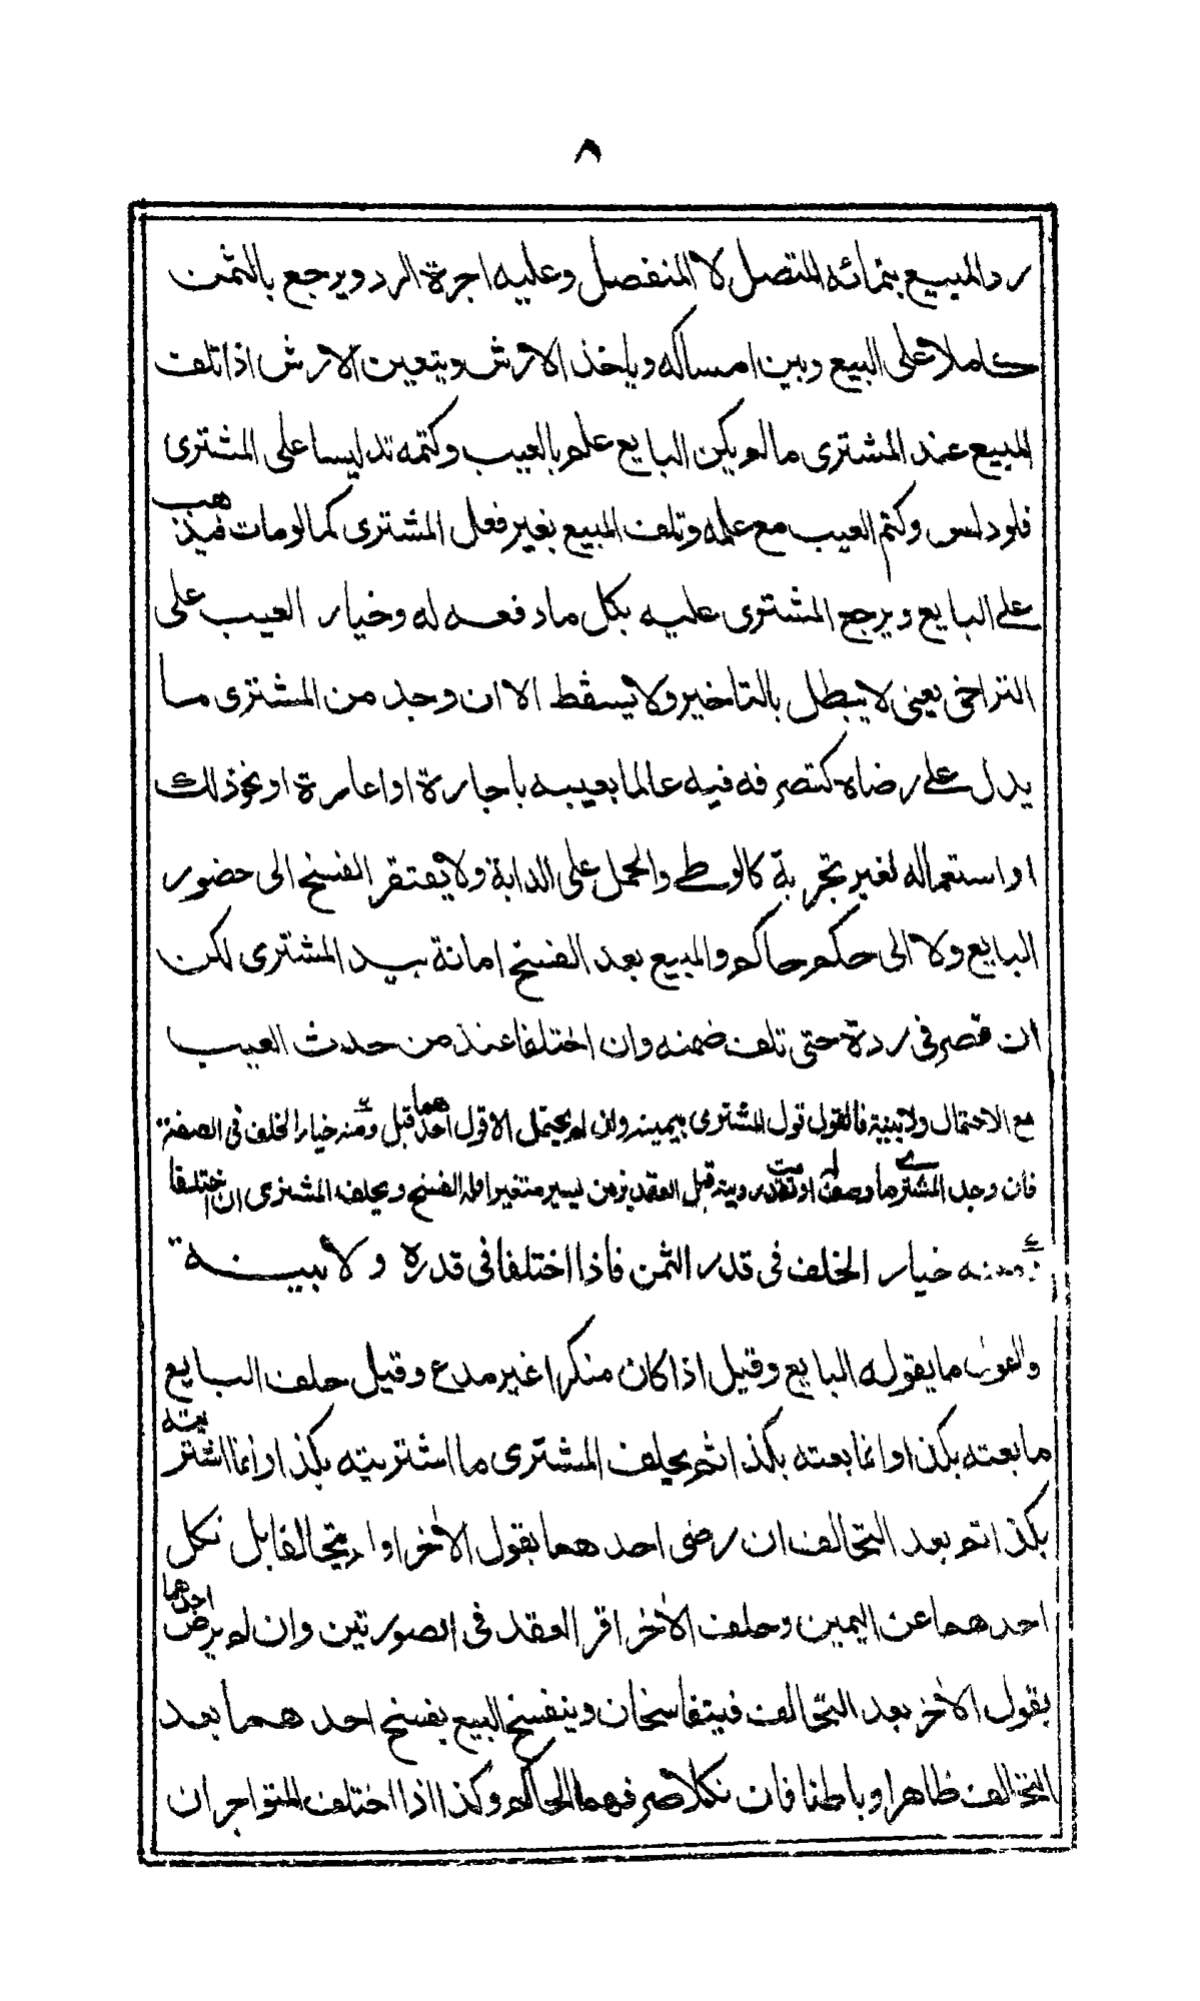 ٨
رد المبيع بنمائه المتصل لا المنفصل وعليه اجرة الرد ويرجع بالثمن
كاملا على البيع وبين امساكه وياخذ الارش ويتعين الارش اذا تلف
المبيع عند المشترى ما لم يكن البايع علم بالعيب وكتمه تدليسا على المشترى
فلو دلس وكتم العيب مع علمه وتلف المبيع بغير فعل المشترى كما لو مات فيذهب
على البايع ويرجع المشترى عليه بكل ما دفعه له وخيار العيب على
التراخى يعنى لا يبطل بالتاخير ولا يسقط الا ان وجد من المشترى ما
يدل على رضاه كتصرفه فيه عالما بعيبه باجارة او اعارة او نحو ذلك
او استعماله لغير تجربة كالوطى والحمل على الدابة ولا يفتقر الفسخ الى حضور
البايع ولا الى حكم حاكم والمبيع بعد الفسخ امانة بيد المشترى لكن
ان قصر فى رده حتى تلف ضمنه وان اختلفا عند من حدث العيب
مع الاحتمال ولا بينة فالقول قول المشترى بيمينه وان لم يحتمل الا قول احدهما قبل ومنه خيار الخلف فى الصفة
فان وجد المشترى ما وصف له او تقدمت رويته قبل العقد بزمن يسير متغيرا فله الفسخ ويحلف المشترى ان اختلفا
ومنه خيار الخلف فى قدر الثمن فاذا اختلفا فى قدره ولا بينة
والقول ما يقوله البايع وقيل اذا كان منكرا غير مدع وقيل حلف البايع
ما بعته بكذا وانما بعته بكذا ثم يحلف المشترى ما اشتريته بكذا وانما اشتريته
بكذا ثم بعد التحالف ان رضى احدهما بقول الاخر او لم يتحالفا بل نكل
احدهما عن اليمين وحلف الاخر اقر العقد فى الصورتين وان لم يرض احدهما
بقول الاخر بعد التحالف فيتفاسخان وينفسخ البيع بفسخ احدهما بعد
التحالف ظاهرا وباطنا فان نكلا صرفهما الحاكم وكذا اذا اختلف المتواجران